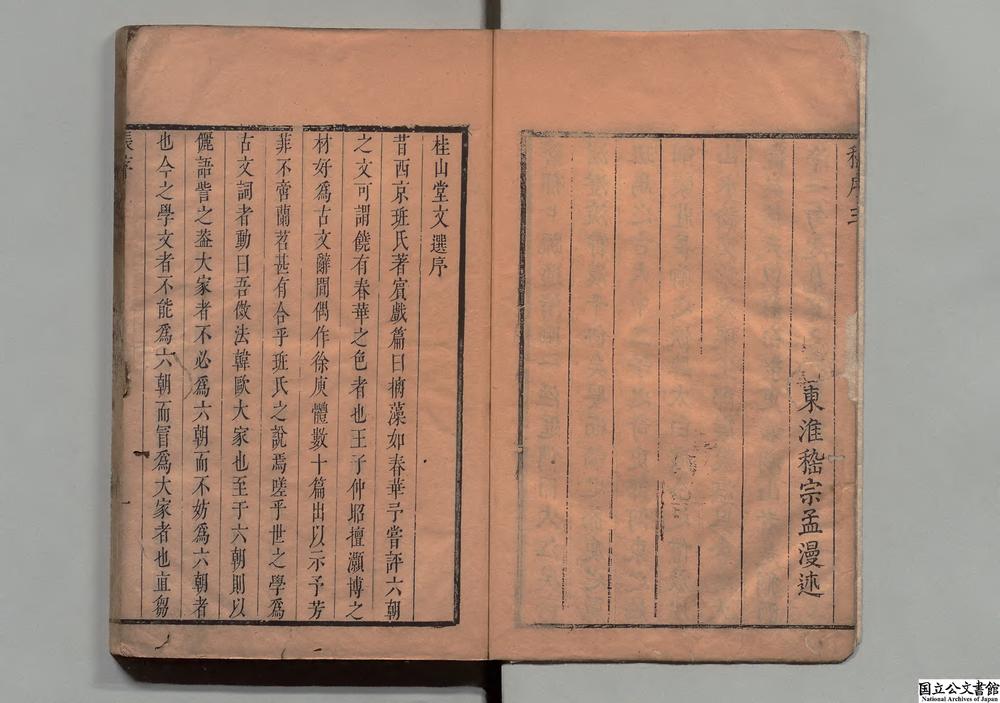 嵇序 三
山東淮嵇宗孟漫述
桂山堂文選序
昔西京班氏著賓戲篇曰摛藻如春華予嘗評六朝
之文可謂饒有春華之色者也王子仲昭擅灝博之
材好爲古文辭間偶作徐庾體數十篇出以示予芳
菲不啻蘭茗甚有合乎班氏之說焉嗟乎世之學爲
古文詞者動曰吾倣法韓歐大家也至于六朝則以
儷語訾之葢大家者不必爲六朝而不妨爲六朝者
也今之學文者不能爲六朝而冒爲大家者也直芻
張序
一
国立公文書館
National Archives of Japan